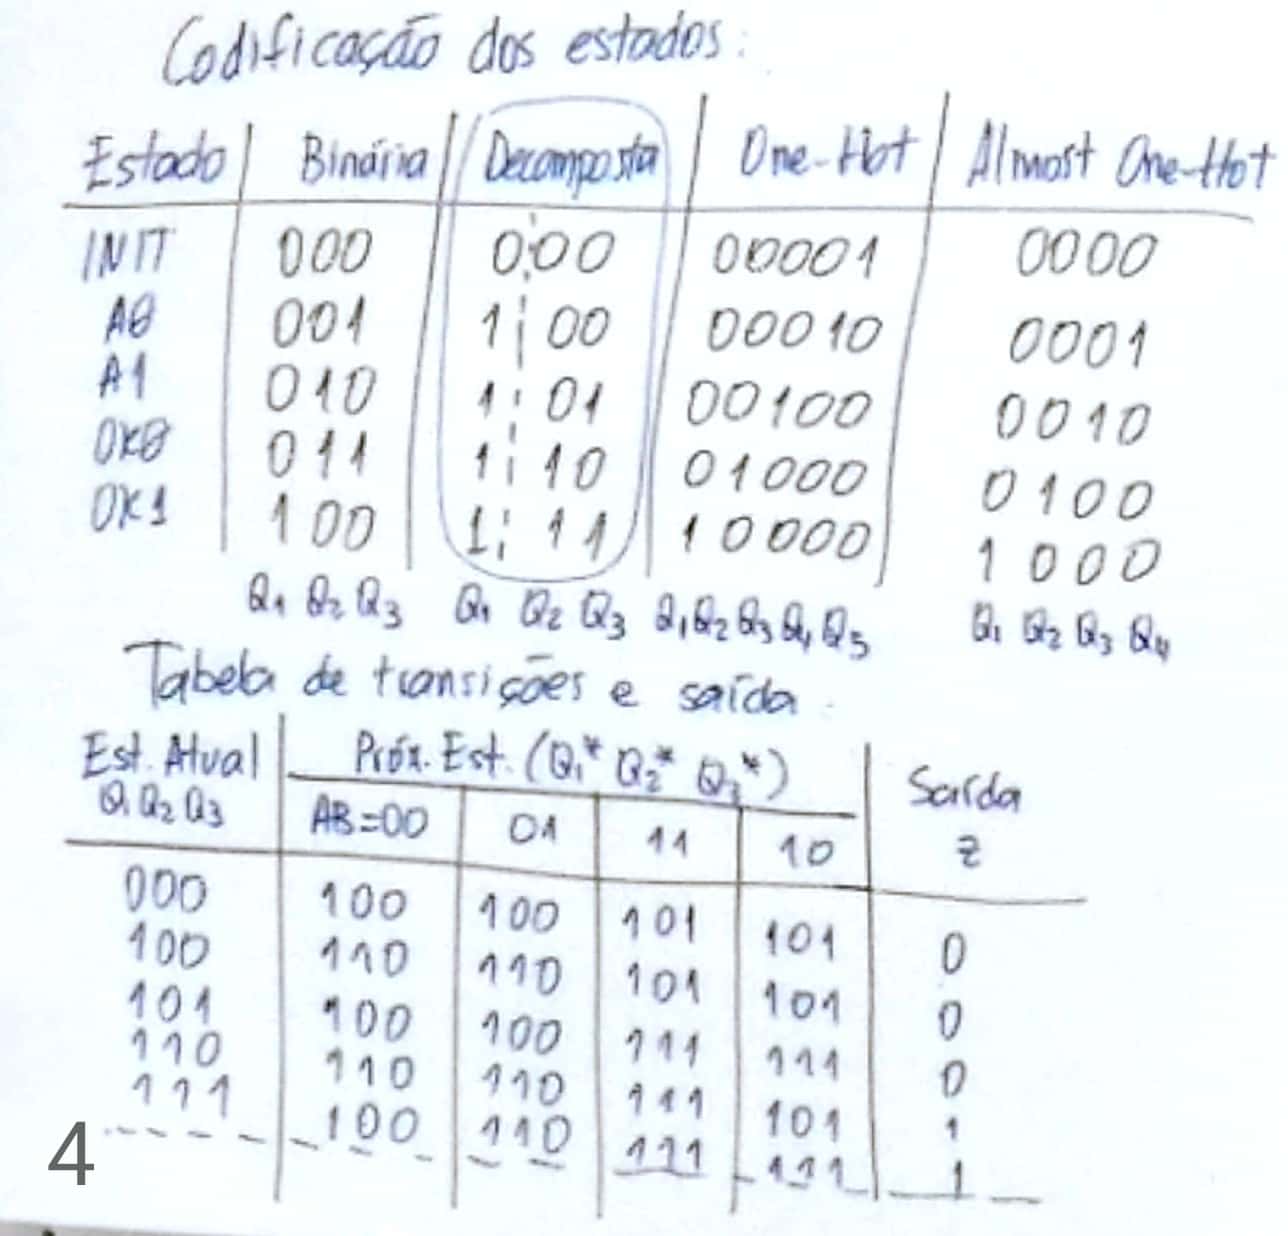 Codificação dos estados:
Estado Binária Decomposta One-Hot Almost One-Hot
INIT 000 0 00 00001 0000
A0 001 1 00 00010 0001
A1 010 1 01 00100 0010
OK0 011 1 10 01000 0100
OK1 100 1 11 10000 1000
Q1 Q2 Q3 Q1 Q2 Q3 Q1 Q2 Q3 Q4 Q5 Q1 Q2 Q3 Q4
Tabela de transições e saída
Est. Atual Próx. Est. (Q1* Q2* Q3*) Saída
Q1 Q2 Q3 AB=00 01 11 10 z
000 100 100 101 101 0
100 110 110 101 101 0
101 100 100 111 111 0
110 110 110 111 101 1
111 100 110 111 111 1
4